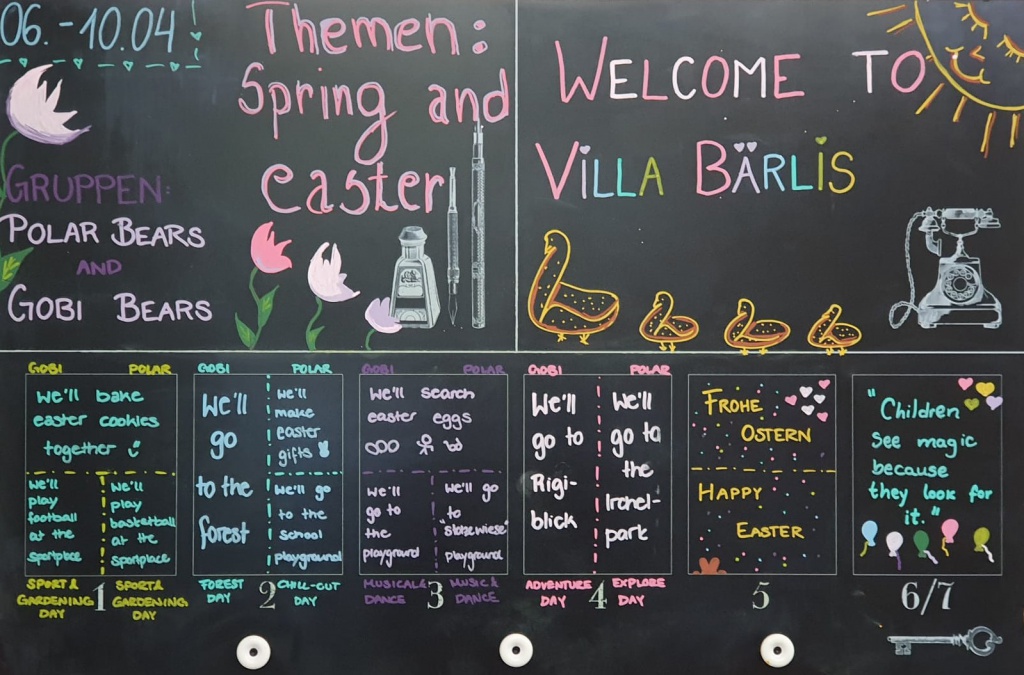 06.-10.04
Themen:
Spring and
easter
GRUPPEN:
POLAR BEARS
AND
GOBI BEARS
WELCOME TO
VILLA BÄRLIS
GOBI POLAR
we'll bake
easter cookies
together
we'll
play
football
at the
sportplace
we'll
play
basketball
at the
sportplace
SPORT &
GARDENING
DAY
1
SPORT &
GARDENING
DAY
GOBI POLAR
we'll
go
to the
forest
we'll
make
easter
gifts
we'll go
to the
school
playground
FOREST
DAY
2
CHILL-OUT
DAY
GOBI POLAR
we'll search
easter eggs
we'll
go to
the
playground
we'll go
to
playground
MUSICAL &
DANCE
3
MUSIC &
DANCE
GOBI POLAR
we'll
go to
Rigi-
blick
we'll
go to
the
Irchel-
park
ADVENTURE
DAY
4
EXPLORE
DAY
FROHE
OSTERN
HAPPY
EASTER
5
"Children
see magic
because
they look for
it."
6/7